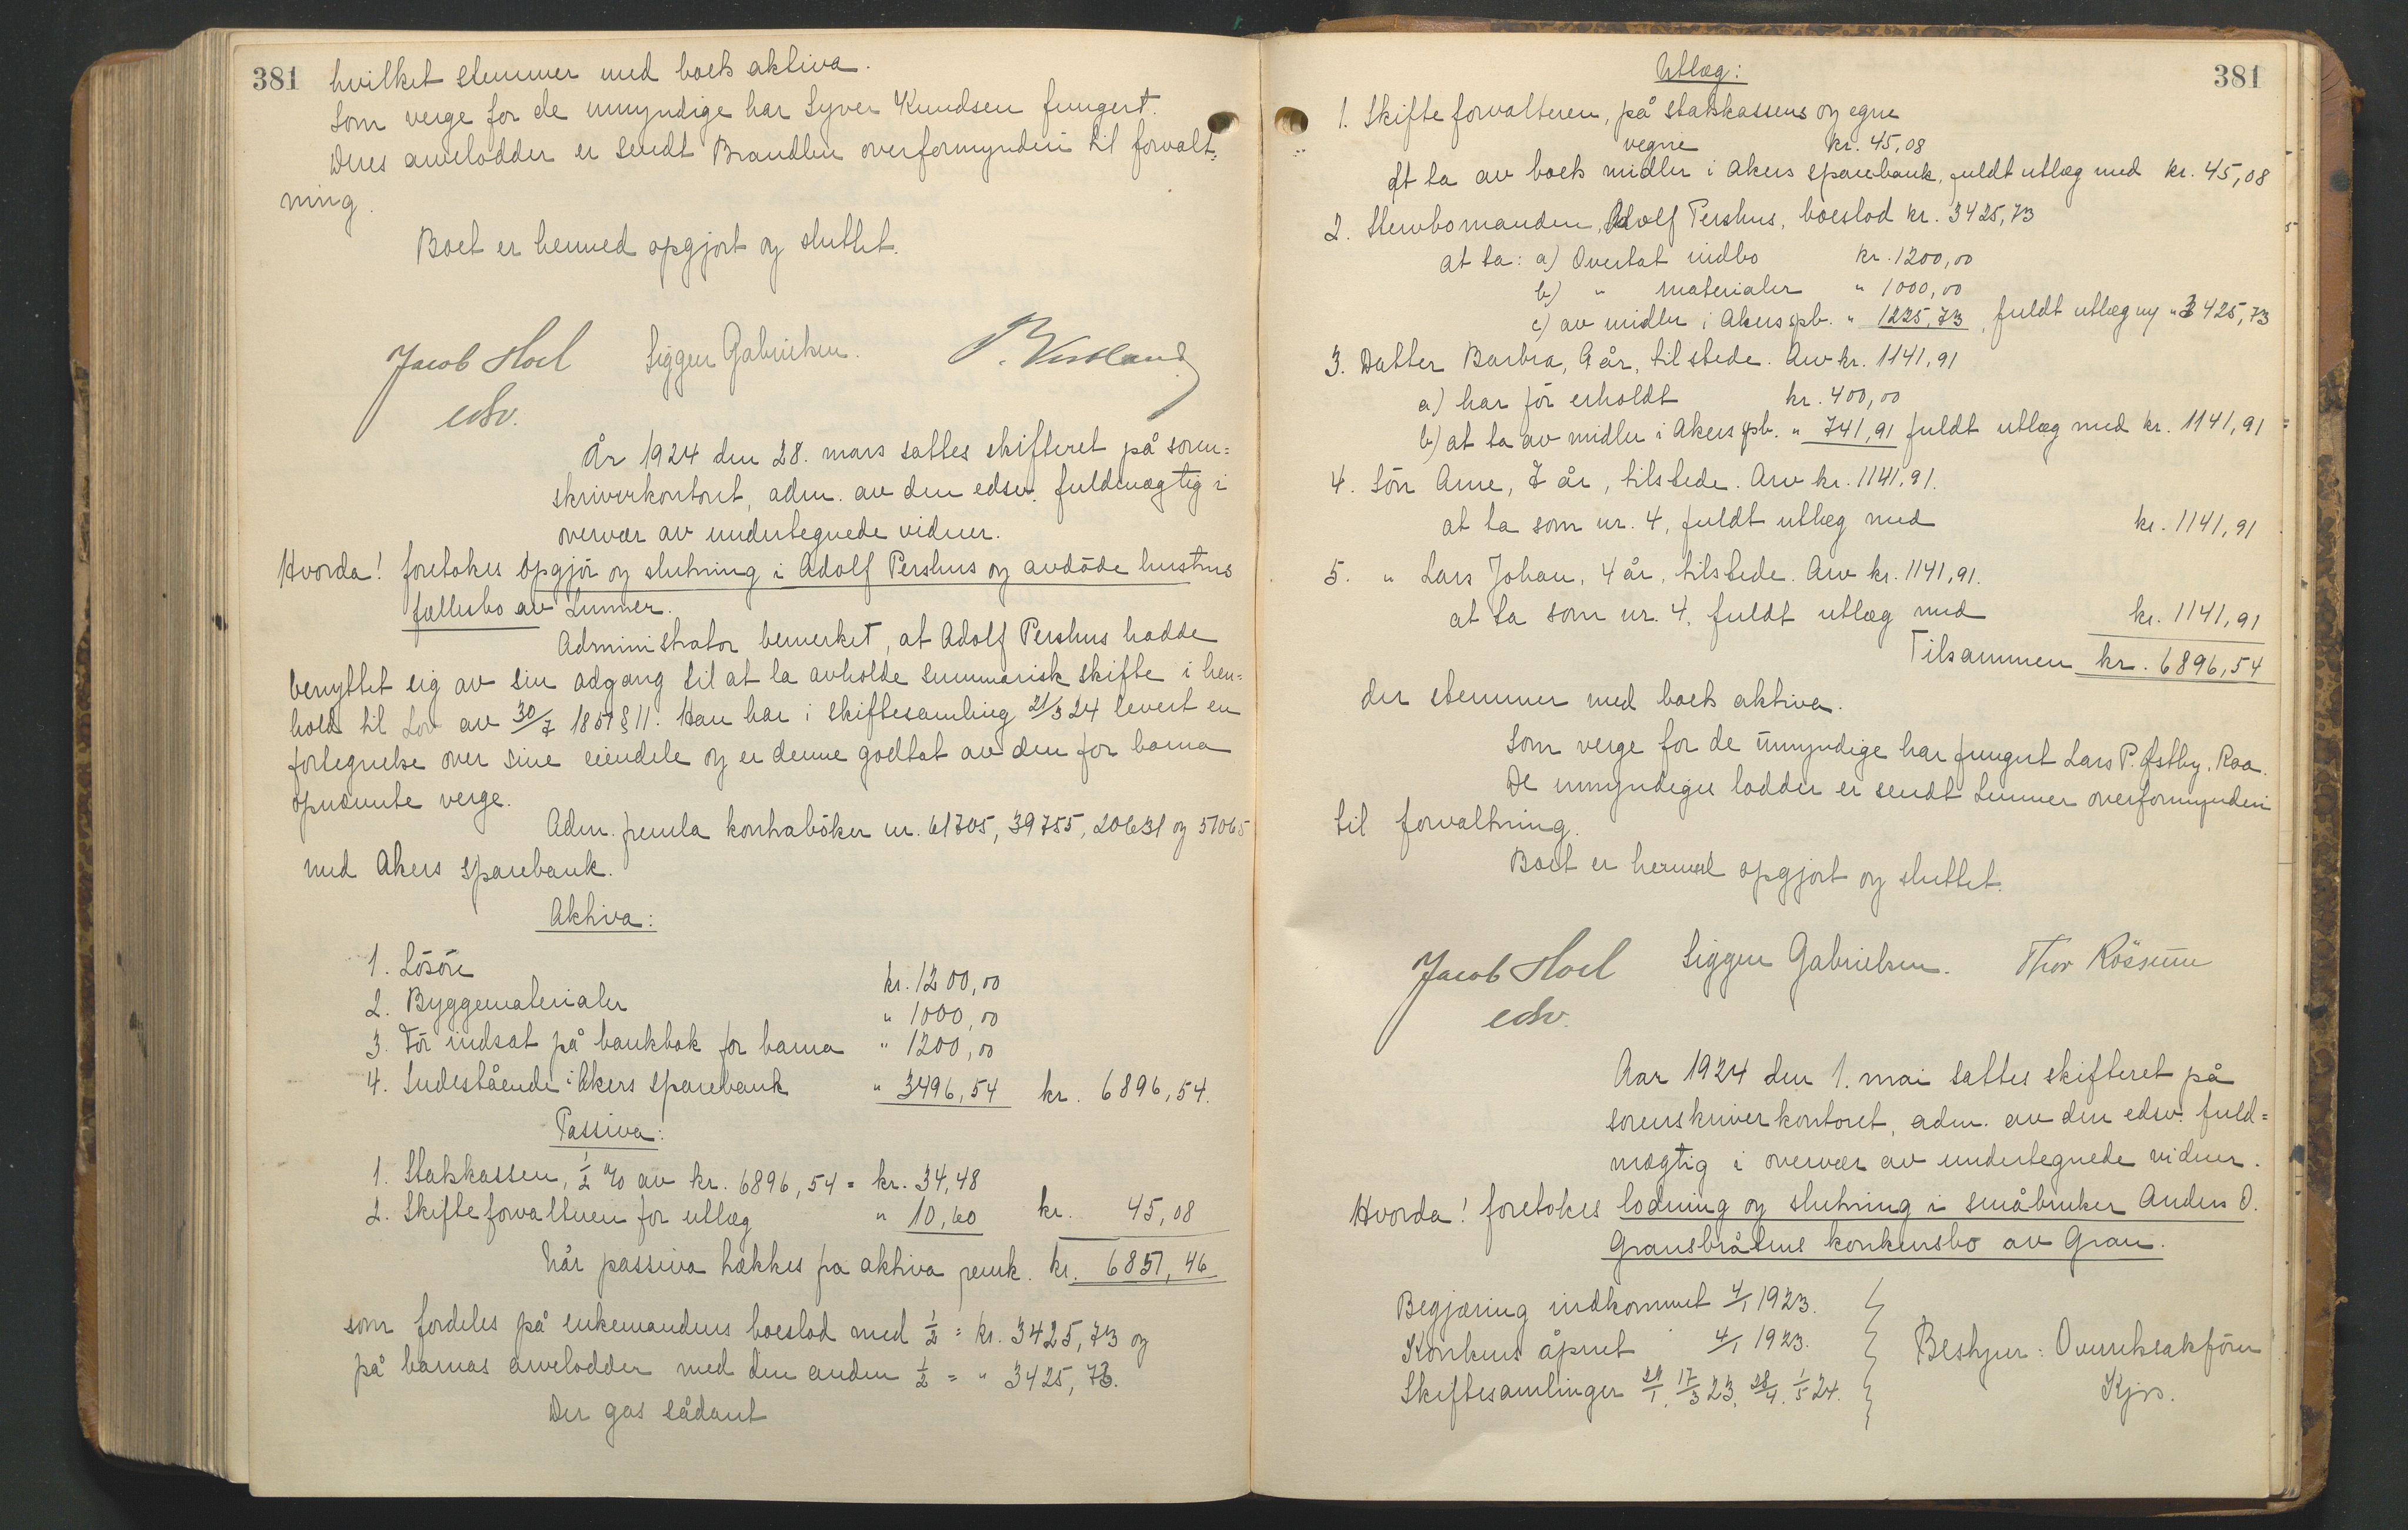 381
hvilket stemmer med boets aktiva.
Som verge for de umyndige har Syver Knudsen fungert.
Deres arvelodder er sendt Brandbu overformynderi til forvalt=
ning.
Boet er hermed opgjort og sluttet.
Jacob Hoel Siggen Gabrielsen.
edsv.
År 1924 den 28. mars sattes skifteret på soren=
skriverkontoret, adm. av den edsv. fuldmægtig i
overvær av undertegnede vidner.
Hvorda! foretokes opgjör og slutning i Adolf Pershus og avdöde hustrus
fællesbo av Lunner.
Administrator bemerket, at Adolf Pershus hadde
benyttet sig av sin adgang til at la avholde summarisk skifte i hen=
hold til Lov av 30/7 1851 § 11. Han har i skiftesamling 21/3 24 levert en
fortegnelse over sine eiendele og er denne godtat av den for barna
opnævnte verge.
Adm. freml. kontrabøker nr. 61705, 39755, 20631 og 51065
med Akers sparebank.
Aktiva:
1. Lösöre kr. 1200,00
2. Byggematerialer " 1000,00
3. För indsat på bankbok for barna " 1200,00
4. Indestående i Akers sparebank " 3496,54 kr. 6896,54.
Passiva:
1. Statskassen, 1/2 % av kr. 6896,54 = kr. 34,48
2. Skifteforvalteren for utlæg " 10,60 kr. 45,08
Når passiva trækkes fra aktiva fremk. kr. 6851,46
som fordeles på enkemandens boeslod med 1/2 = kr. 3425,73 og
på barnas arvelodder med den anden 1/2 = " 3425,73.
Der gas sådant
381
Utlæg:
1. Skifteforvalteren, på statskassens og egne
vegne kr. 45,08
At ta av boets midler i Akers sparebank, fuldt utlæg med kr. 45,08
2. Stervbomanden, Adolf Pershus, boeslod kr. 3425,73
at ta: a) Overtat indbo kr. 1200,00
b) " materialer " 1000,00
c) av midler i Akers spb. " 1225,73, fuldt utlæg m/ " 3425,73
3. Datter Barbra, 9 år, tilstede. Arv kr. 1141,91
a) har för erholdt kr. 400,00
b) at ta av midler i Akers spb. " 741,91 fuldt utlæg med kr. 1141,91
4. Sön Arne, 7 år, tilstede. Arv kr. 1141,91.
at ta som nr. 4, fuldt utlæg med kr. 1141,91
5. " Lars Johan, 4 år, tilstede. Arv kr. 1141,91.
at ta som nr. 4, fuldt utlæg med kr. 1141,91
Tilsammen kr. 6896,54
der stemmer med boets aktiva.
Som verge for de umyndige har fungert Lars P. Østby, Roa.
De umyndiges lodder er sendt Lunner overformynderi
til forvaltning.
Boet er hermed opgjort og sluttet.
Jacob Hoel Siggen Gabrielsen. Thor Rössum
edsv.
Aar 1924 den 1. mai sattes skifteret på
sorenskriverkontoret, adm. av den edsv. fuld=
mægtig i overvær av undertegnede vidner.
Hvorda! foretokes lodning og slutning i småbruker Anders O.
Gransbråtens konkursbo av Gran.
Begjæring indkommet 4/1 1923.
Konkurs åpnet 4/1 1923.
Skiftesamlinger 29/1, 17/3 23, 28/4, 1/5 24.
Bestyrer: Overretssakförer
Kjos.